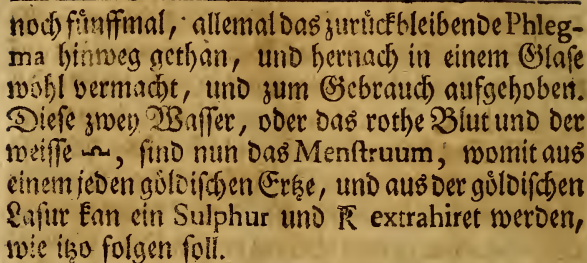 noch fünffmal, allemal das zurückbleibende Phleg-
ma hinweg gethan, und hernach in einem Glase
wohl vermacht, und zum Gebrauch aufgehoben.
Diese zwey Wasser, oder das rothe Blut und der
weisse 🝞, sind nun das Menstruum, womit aus
einem jeden göldischen Ertze, und aus der göldischen
Lasur kan ein Sulphur und extrahiret werden,
wie itzo folgen soll.